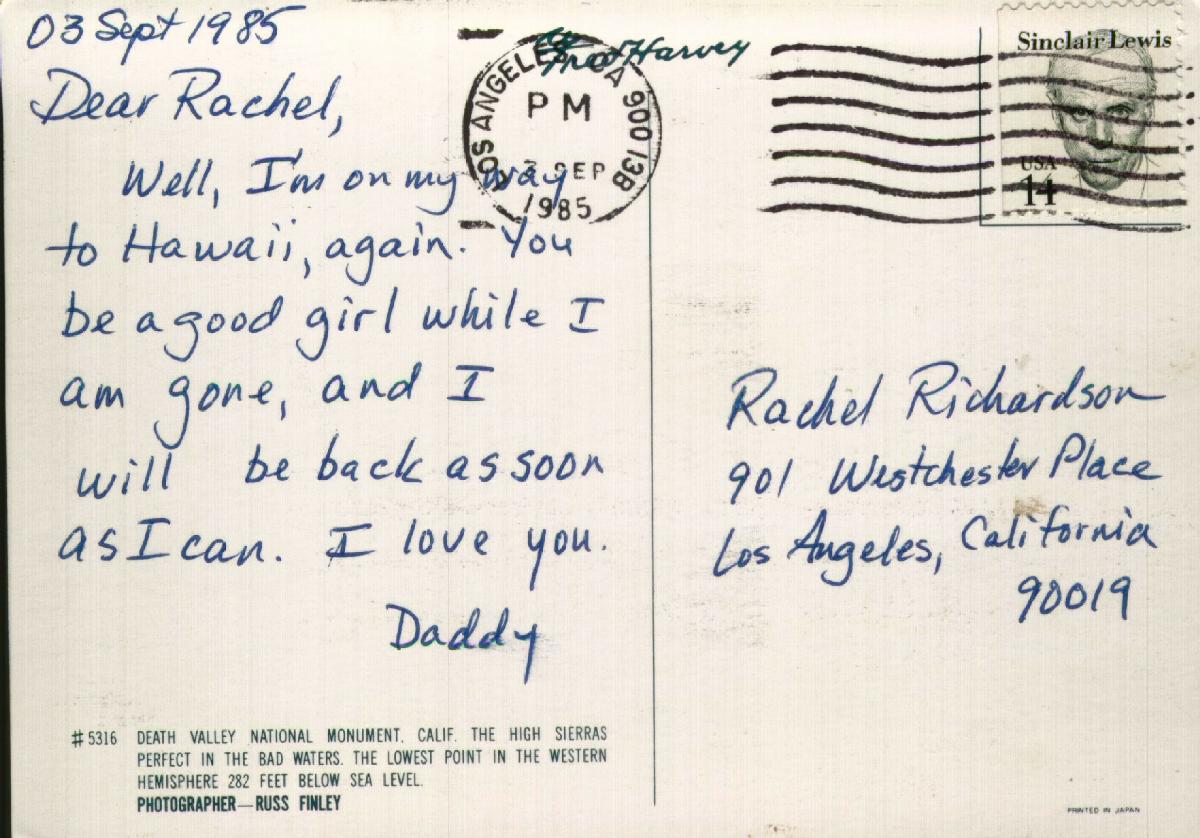 03 Sept 1985
Dear Rachel,
Well, I'm on my way
to Hawaii, again. You
be a good girl while I
am gone, and I
will be back as soon
as I can. I love you.
Daddy
#5316 DEATH VALLEY NATIONAL MONUMENT, CALIF. THE HIGH SIERRAS
PERFECT IN THE BAD WATERS. THE LOWEST POINT IN THE WESTERN
HEMISPHERE 282 FEET BELOW SEA LEVEL.
PHOTOGRAPHER—RUSS FINLEY
Fred Harvey
LOS ANGELES CA 900 13B
PM
3 SEP
1985
Sinclair Lewis
USA
14
Rachel Richardson
901 Westchester Place
Los Angeles, California
90019
PRINTED IN JAPAN